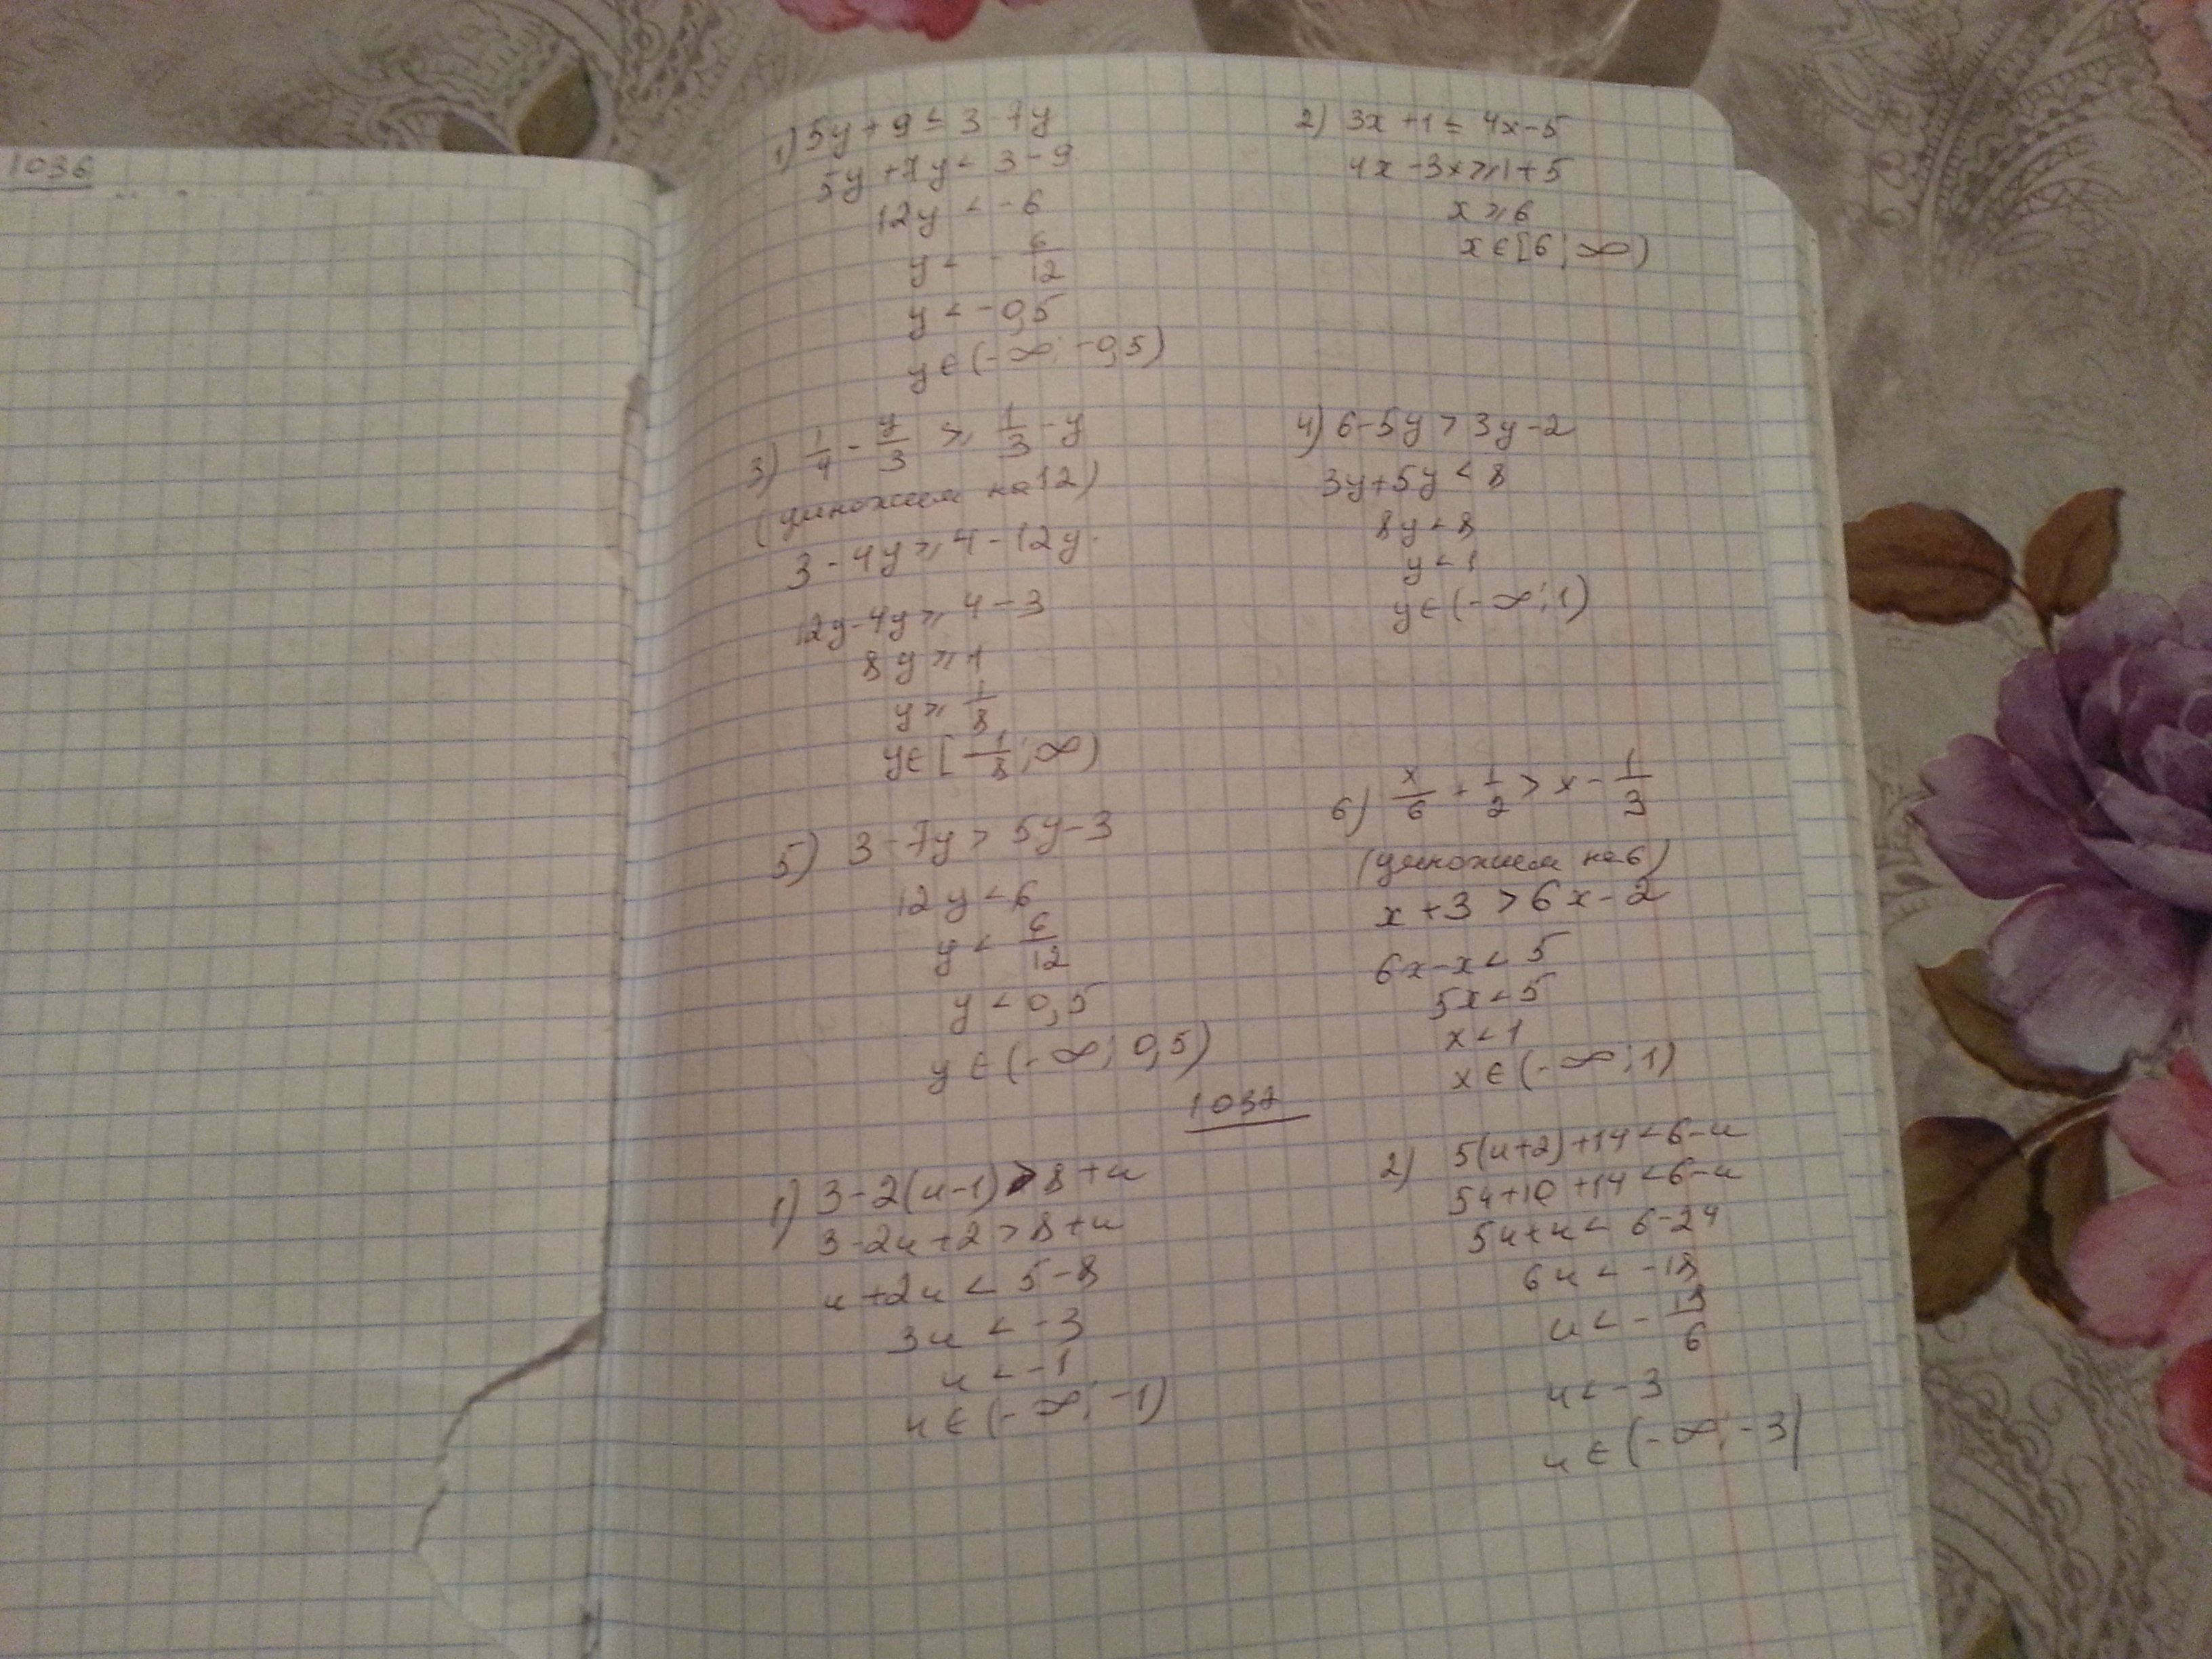 1036
1) 5y + 9 ≤ 3 - 7y
5y + 7y < 3 - 9
12y < - 6
y < - 6/12
y < - 0,5
y ∈ (- ∞; - 0,5)
2) 3x + 1 ≤ 4x - 5
4x - 3x ≥ 1 + 5
x ≥ 6
x ∈ [6; ∞)
3) 1/4 - y/3 ≥ 1/3 - y
(умножим на 12)
3 - 4y ≥ 4 - 12y
12y - 4y ≥ 4 - 3
8y ≥ 1
y ≥ 1/8
y ∈ [1/8; ∞)
4) 6 - 5y > 3y - 2
3y + 5y < 8
8y < 8
y < 1
y ∈ (- ∞; 1)
5) 3 - 7y > 5y - 3
12y < 6
y < 6/12
y < 0,5
y ∈ (- ∞; 0,5)
6) x/6 + 1/2 > x - 1/3
(умножим на 6)
x + 3 > 6x - 2
6x - x < 5
5x < 5
x < 1
x ∈ (- ∞; 1)
1037
1) 3 - 2(u - 1) > 8 + u
3 - 2u + 2 > 8 + u
u + 2u < 5 - 8
3u < - 3
u < - 1
u ∈ (- ∞; - 1)
2) 5(u + 2) + 14 < 6 - u
5u + 10 + 14 < 6 - u
5u + u < 6 - 24
6u < - 18
u < - 18/6
u < - 3
u ∈ (- ∞; - 3)